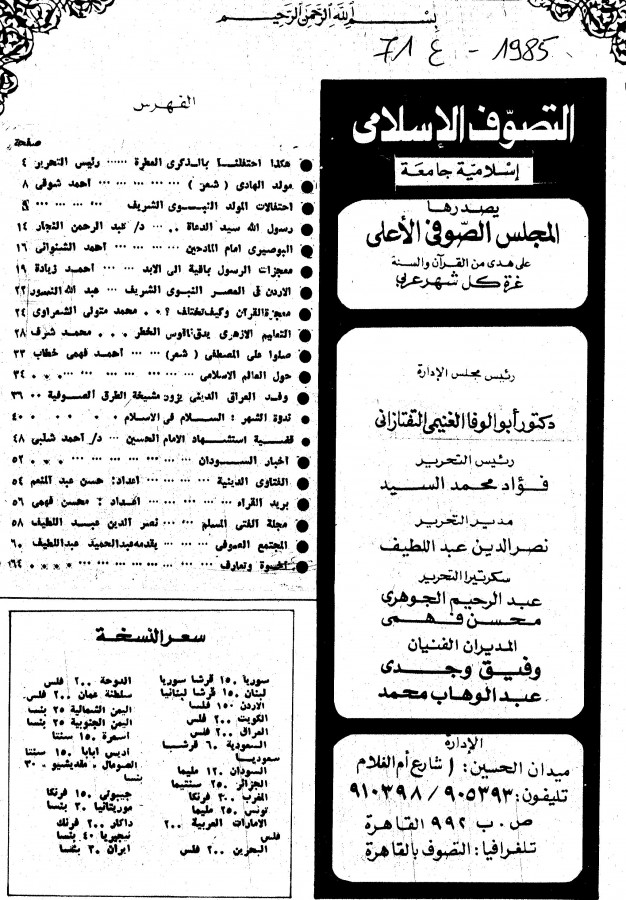 بِسْمِ اللَّهِ الرَّحْمَنِ الرَّحِيمِ
71 ع - 1985
التصوّف الإسلامى
إسلامية جامعة
يصدرها
المجلس الصّوفى الأعلى
على هدى من القرآن والسنة
غرة كل شهر عربى
رئيس مجلس الإدارة
دكتور أبو الوفا الغنيمى التفتازانى
رئيس التحرير
فؤاد محمد السيد
مدير التحرير
نصر الدين عبد اللطيف
سكرتيرا التحرير
عبد الرحيم الجوهرى
محسن فهمى
المديران الفنيان
وفيق وجدى
عبد الوهاب محمد
الإدارة
ميدان الحسين: ١ شارع أم الغلام
تليفون: ٩٠٥٣٩٣ / ٩١٠٣٩٨
ص . ب ٩٩٢ القاهرة
تلغرافيا: التصوف بالقاهرة
الفهرس
صفحة
هكذا احتفلنا بالذكرى العطرة ...... رئيس التحرير ٤
مولد الهادى ( شعر ) ... ... ... ... أحمد شوقى ٨
احتفالات المولد النبوى الشريف ... ... ...
رسول الله سيد الدعاة ... د/ عبد الرحمن النجار ١٤
البوصيرى امام المادحين ... ... أحمد الشنوانى ١٦
معجزات الرسول باقية الى الابد ... ... أحمد زيادة ١٩
الاردن فى العصر النبوى الشريف ... عبد الله النسور ٢٢
معجزة القرآن وكيف تختلف ؟ . . محمد متولى الشعراوى ٢٤
التعليم الازهرى يدق ناقوس الخطر . . . محمد شرف ٢٨
صلوا على المصطفى ( شعر ) ... ... أحمد فهمى خطاب ٣٣
حول العالم الاسلامى ... ... ... ... ٣٤
وفد العراق الدينى يزور مشيخة الطرق الصوفية .. ٣٦
ندوة الشهر : السلام فى الاسلام . . . . ٤٠
قضية استشهاد الامام الحسين ... د/ أحمد شلبى ٤٨
أخبار السودان ... ... ... ... ٥٢
الفتاوى الدينية ... ... ... اعداد: حسن عبد المنعم ٥٤
بريد القراء ... ... ... اعداد : محسن فهمى ٥٦
مجلة الفتى المسلم ... ... نصر الدين عبد اللطيف ٥٨
المجتمع الصوفى ... ... يقدمه عبد الحميد عبد اللطيف ٦٠
أخوة وتعارف ... ... ... ... ٦٤
سعر النسخة
سوريا ١٥٠ قرشا سوريا
لبنان ١٥٠ قرشا لبنانيا
الاردن ١٥٠ فلسا
الكويت ٢٠٠ فلس
العراق ٢٠٠ فلس
السعودية ٦٠ قرشا
سعوديا
السودان ١٢٠ مليما
الجزائر ٢٥٠ سنتيما
المغرب ٣٠٠ فرنكا
تونس ٢٥٠ مليما
الامارات العربية ٢٠٠
فلس
البحرين ٢٠٠ فلس
الدوحة ٢٠٠ فلس
سلطنة عمان ٢٠٠ فلس
اليمن الشمالية ٢٥ بنسا
اليمن الجنوبية ٢٥ بنسا
أسمرة ١٥٠ سنتا
أديس أبابا ١٥٠ سنتا
الصومال . مقديشيو ٣٠
بنسا
جيبوتى ١٥٠ فرنكا
موريتانيا ٢٠ بنسا
داكار ٢٠٠ فرنك
نيجيريا ٤٠ بنسا
ايران ٣٠ بنسا